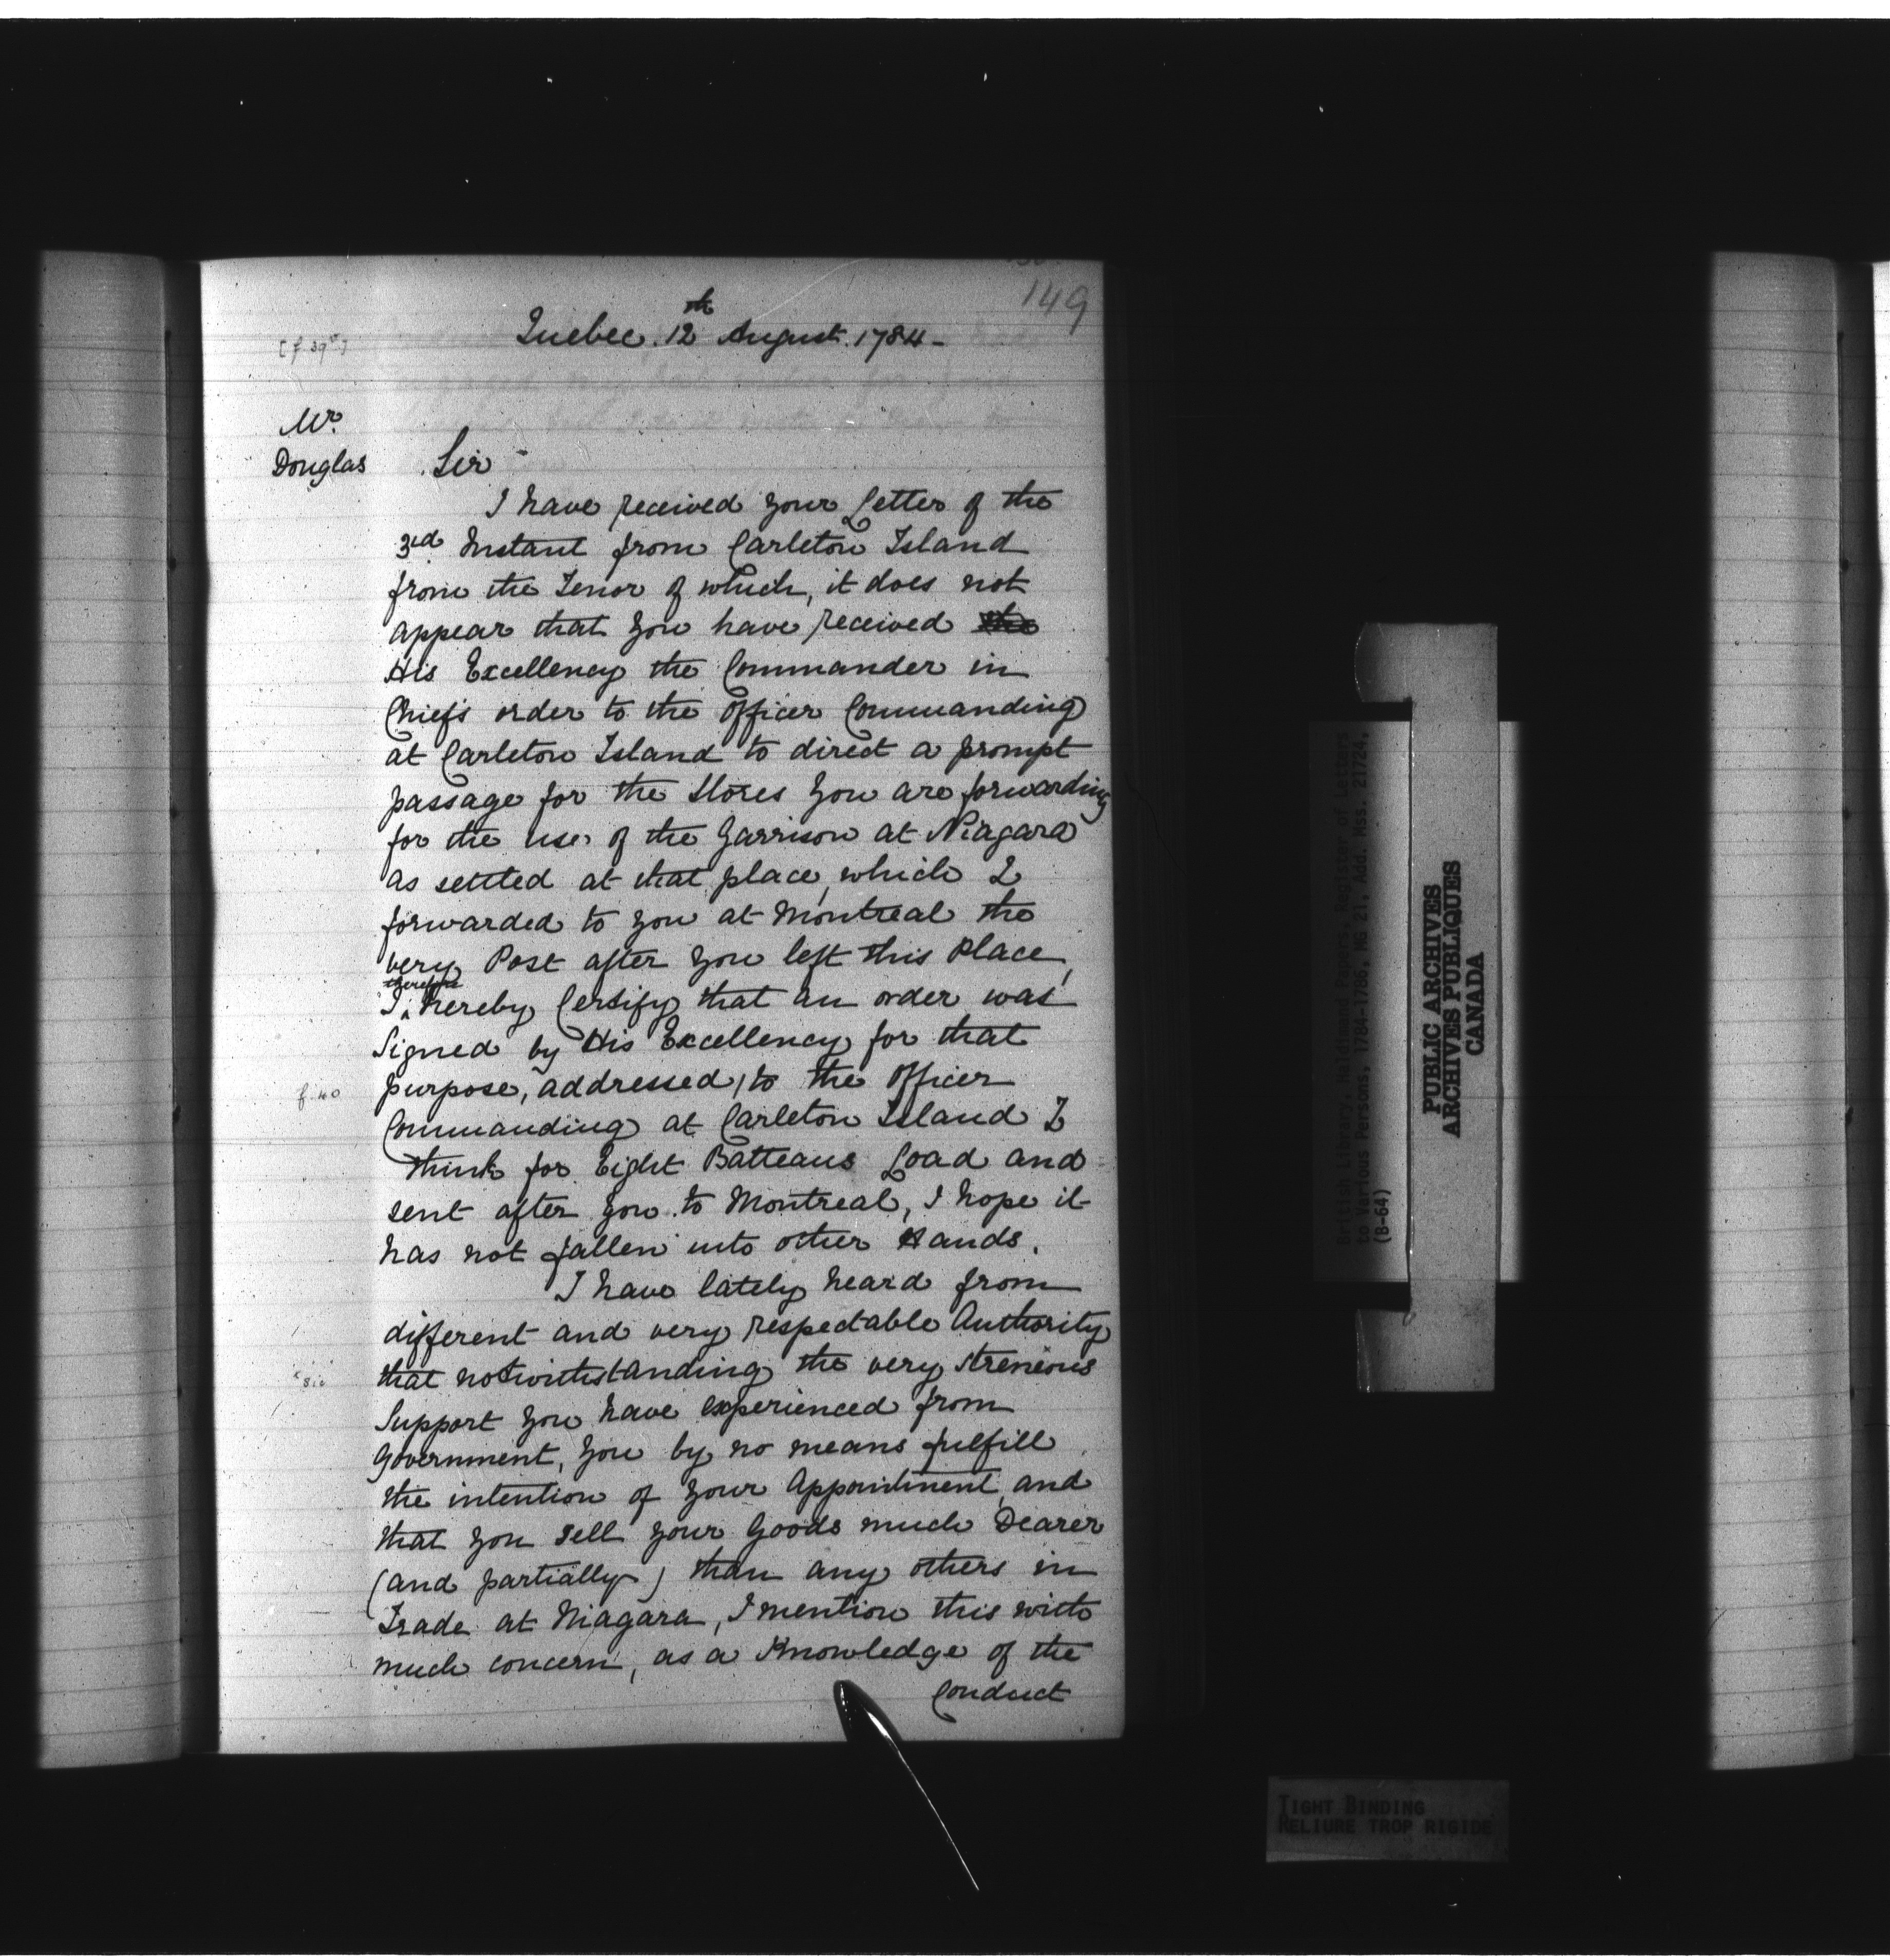 149
Quebec. 12th August. 1784 -
Mr.
Douglas
Sir
I have received your Letter of the
3rd Instant from Carleton Island
from the Tenor of which, it does not
appear that you have received the
His Excellency the Commander in
Chiefs order to the Officer Commanding
at Carleton Island to direct a prompt
passage for the Stores you are forwarding
for the use of the Garrison at Niagara
as settled at that place, which I
forwarded to you at Montreal the
very Post after you left this Place,
therefore
I hereby Certify that an order was
Signed by His Excellency for that
f. 40
purpose, addressed to the Officer
Commanding at Carleton Island I
think for Eight Batteaus Load and
sent after you to Montreal, I hope it
has not fallen into other Hands.
I have lately heard from
different and very respectable Authority
that notwithstanding the very streneous
sic
Support you have experienced from
Government, you by no means fulfill
the intention of your Appointment, and
that you sell your Goods much Dearer
(and partially) than any others in
Trade at Niagara, I mention this with
much concern, as a Knowledge of the
Conduct
British Library, Haldimand Papers, Register of Letters
to Various Persons, 1784-1786, MG 21, Add. Mss. 21724,
(B-64)
PUBLIC ARCHIVES
ARCHIVES PUBLIQUES
CANADA
TIGHT BINDING
RELIURE TROP RIGIDE